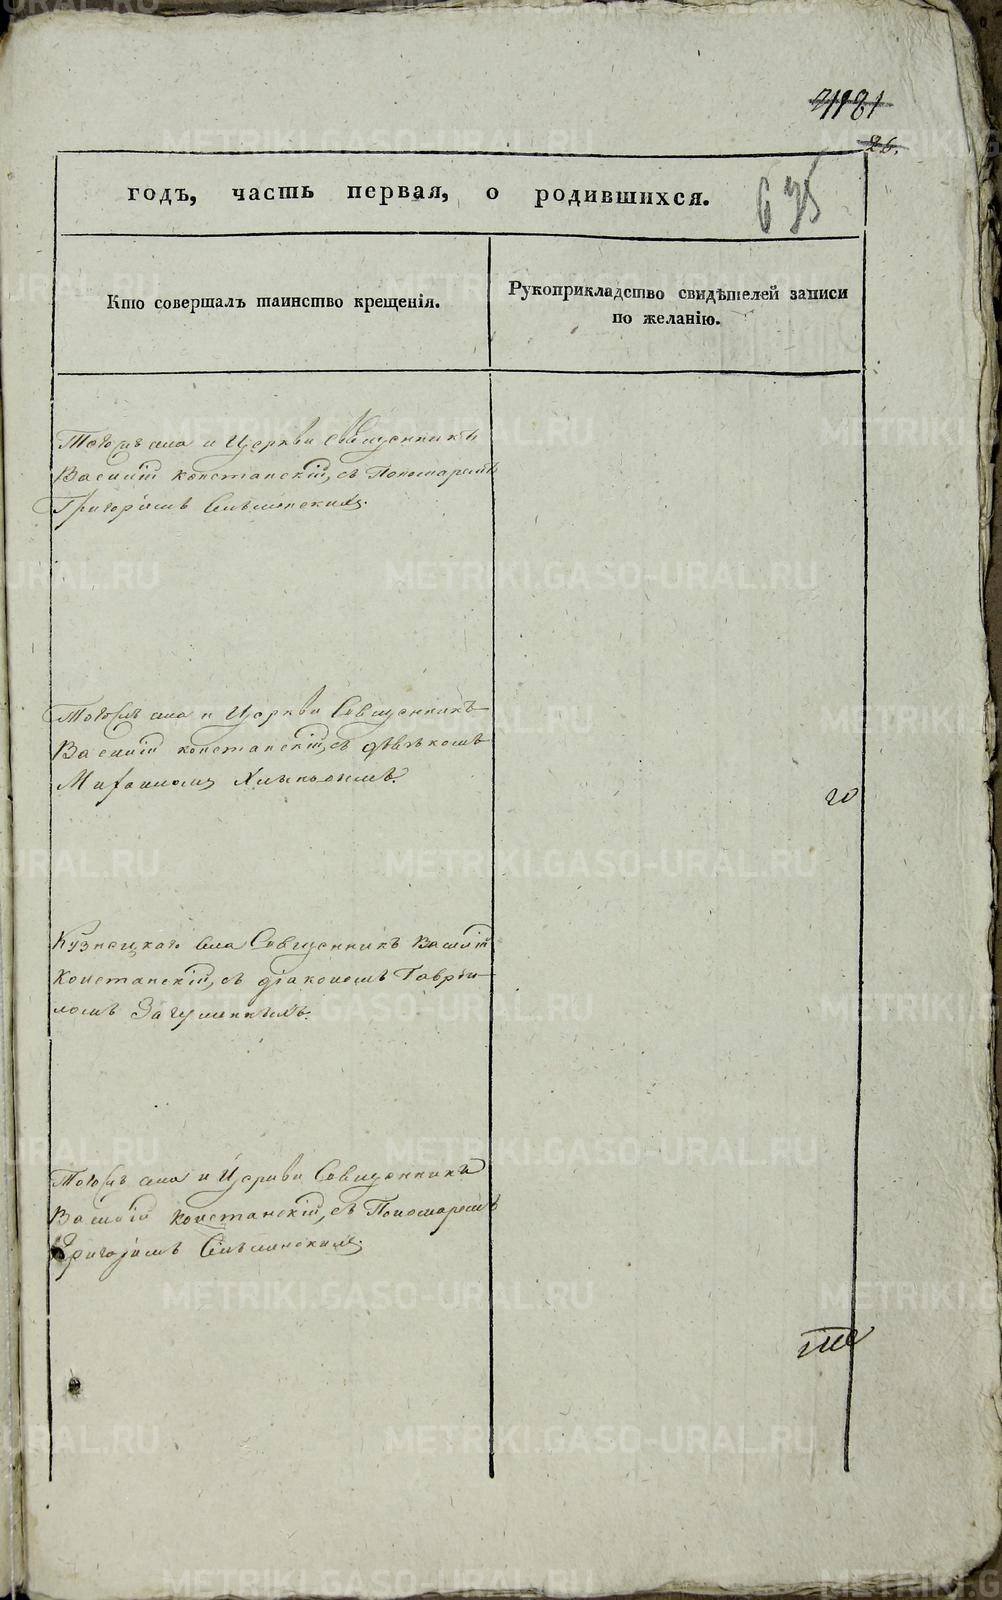 26.
годъ, часть первая, о родившихся.
635
Кто совершалъ таинство крещенія.
Рукоприкладство свидѣтелей записи
по желанію.
Тогожъ села и Церкви Священникъ
Василій Констанскій, съ Пономаремъ
Григоріемъ
Тогожъ села и Церкви Священникъ
Василій Констанскій, съ дьячкомъ
Михаиломъ
Кузнецкаго села Священникъ Василій
Констанскій, съ діакономъ Гаврі-
ломъ
Тогожъ села и Церкви Священникъ
Василій Констанскій, съ Пономаремъ
Григоріемъ
METRIKI.GASO-URAL.RU